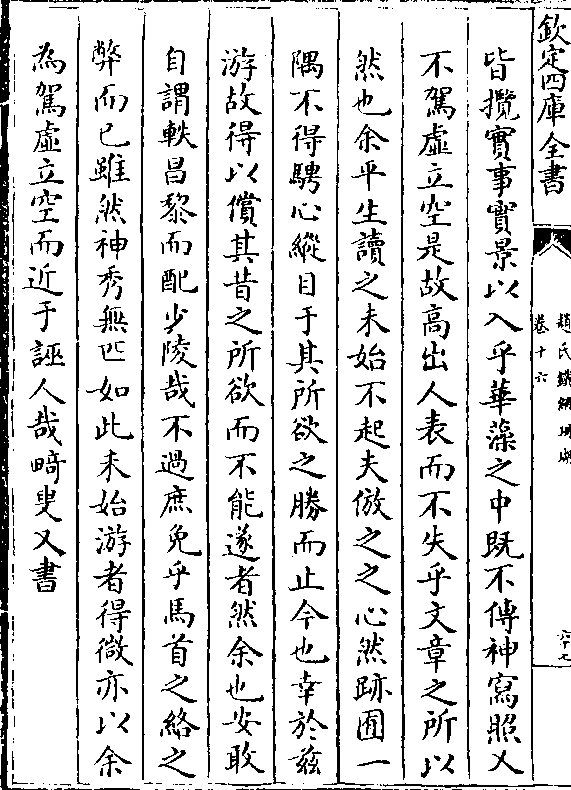 欽定四庫全書
趙氏鐵網珊瑚
卷十六
六十七
皆攬實事實景以入乎華藻之中既不傳神寫照又
不駕虛立空是故高出人表而不失乎文章之所以
然也余平生讀之未始不起夫倣之之心然跡囿一
隅不得騁心縱目于其所欲之勝而止今也幸於兹
游故得以償其昔之所欲而不能遂者然余也安敢
自謂軼昌黎而配少陵哉不過庶免乎馬首之絡之
弊而已雖然神秀無匹如此未始游者得微亦以余
為駕虛立空而近于誣人哉畸叟又書